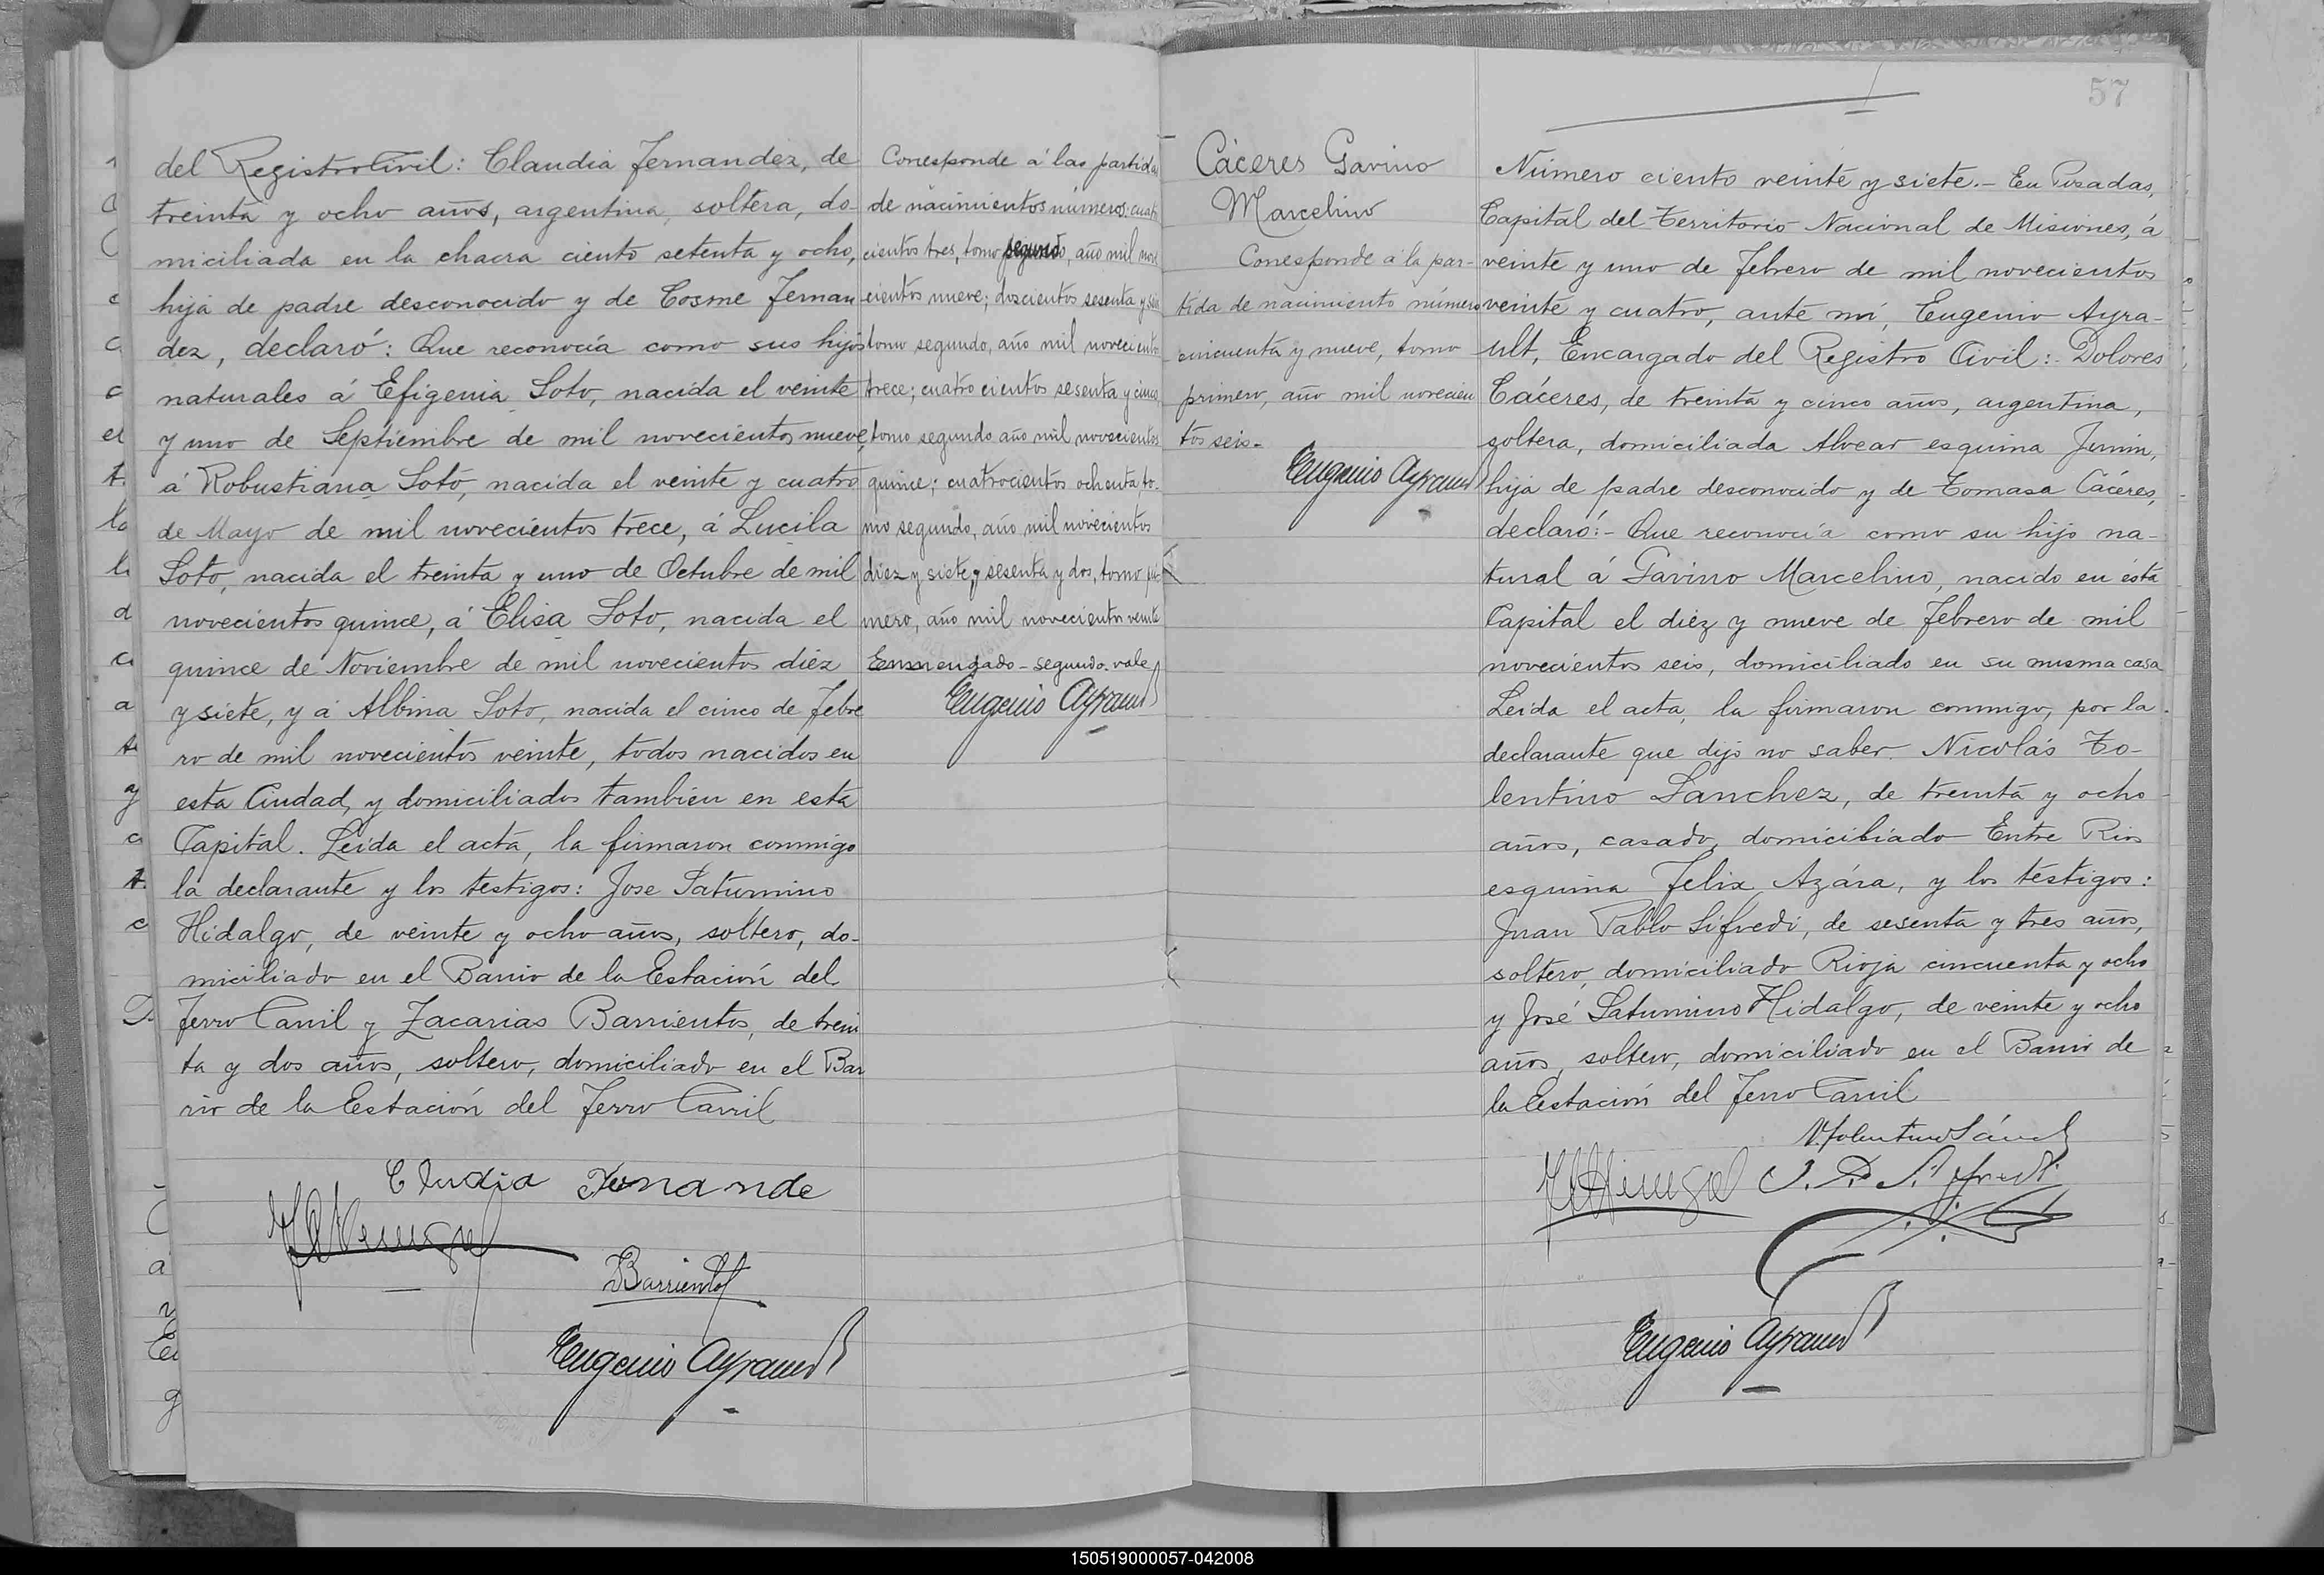 del Registro Civil: Claudia Fernandez, de
treinta y ocho años, argentina, soltera, do-
miciliada en la chacra ciento setenta y ocho,
hija de padre desconocido y de Cosme Fernan
dez, declaró: Que reconocía como sus hijos
naturales á Efigenia Soto, nacida el veinte
y uno de Septiembre de mil novecientos nueve,
á Robustiana Soto, nacida el veinte y cuatro
de Mayo de mil novecientos trece, á Lucila
Soto, nacida el treinta y uno de Octubre de mil
novecientos quince, á Elisa Soto, nacida el
quince de Noviembre de mil novecientos diez
y siete, y á Albina Soto, nacida el cinco de Febre
ro de mil novecientos veinte, todos nacidos en
esta Ciudad, y domiciliados tambien en esta
Capital. Leida el acta, la firmaron conmigo
la declarante y los testigos: Jose Saturnino
Hidalgo, de veinte y ocho años, soltero, do-
miciliado en el Barrio de la Estación del
Ferro Carril y Zacarias Barrientos, de trein
ta y dos años, soltero, domiciliado en el Bar
rio de la Estación del Ferro Carril
Cludia Fernande
Barrientos
Eugenio Ayrault
Corresponde á las partidas
de nacimientos números: cuatro
cientos tres, tomo segundo, año mil nove
cientos nueve; doscientos sesenta y seis
tomo segundo, año mil novecientos
trece; cuatrocientos sesenta y cinco,
tomo segundo año mil novecientos
quince; cuatrocientos ochenta to-
mo segundo, año mil novecientos
diez y siete y sesenta y dos, tomo pri-
mero, año mil novecientos veinte
Enmendado - segundo - vale
Eugenio Ayrault
57
Cáceres Gavino
Marcelino
Corresponde á la par-
tida de nacimiento número
cincuenta y nueve, tomo
primero, año mil novecien
tos seis.
Eugenio Ayrault
Número ciento veinte y siete.- En Posadas,
Capital del Territorio Nacional de Misiones, á
veinte y uno de Febrero de mil novecientos
veinte y cuatro, ante mí, Eugenio Ayra-
ult, Encargado del Registro Civil: Dolores
Cáceres, de treinta y cinco años, argentina,
soltera, domiciliada Alvear esquina Junin,
hija de padre desconocido y de Tomasa Cáceres,
declaró:- Que reconocía como su hijo na-
tural á Gavino Marcelino, nacido en ésta
Capital el diez y nueve de Febrero de mil
novecientos seis, domiciliado en su misma casa
Leida el acta, la firmaron conmigo, por la
declarante que dijo no saber. Nicolás To-
lentino Sanchez, de treinta y ocho
años, casado, domiciliado Entre Rios
esquina Felix Azára, y los testigos:
Juan Pablo Sifredi, de sesenta y tres años,
soltero, domiciliado Rioja cincuenta y ocho
y José Saturnino Hidalgo, de veinte y ocho
años, soltero, domiciliado en el Barrio de
la Estación del Ferro Carril
J. P. Sifredi
Eugenio Ayrault
150519000057-042008